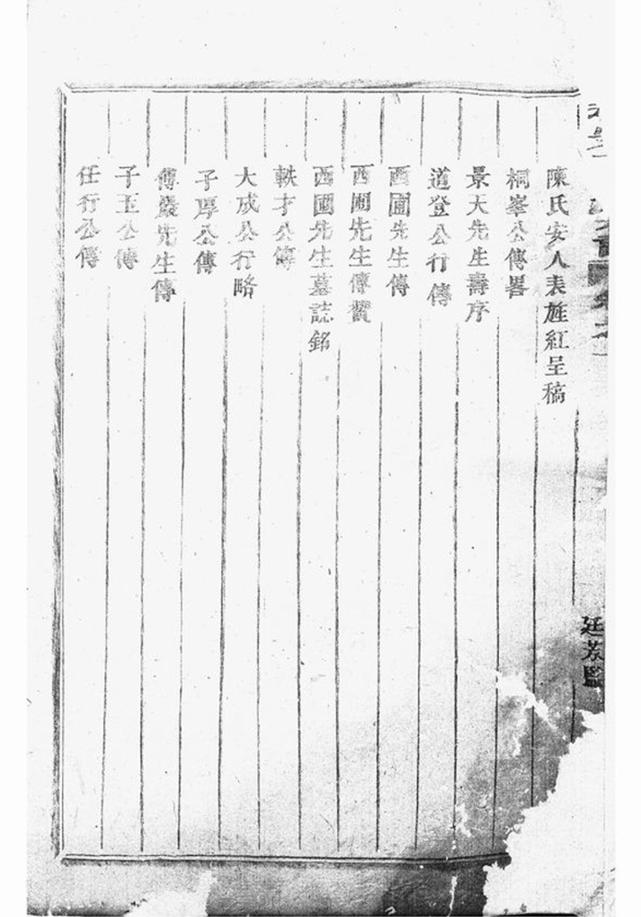 陳氏安人表旌紅呈稿
桐峯公傳畧
景天先生壽序
道登公行傳
酉圃先生傳
酉圃先生傳贊
酉圃先生墓誌銘
軼才公傳
大成公行略
子厚公傳
傅巖先生傳
子玉公傳
任行公傳